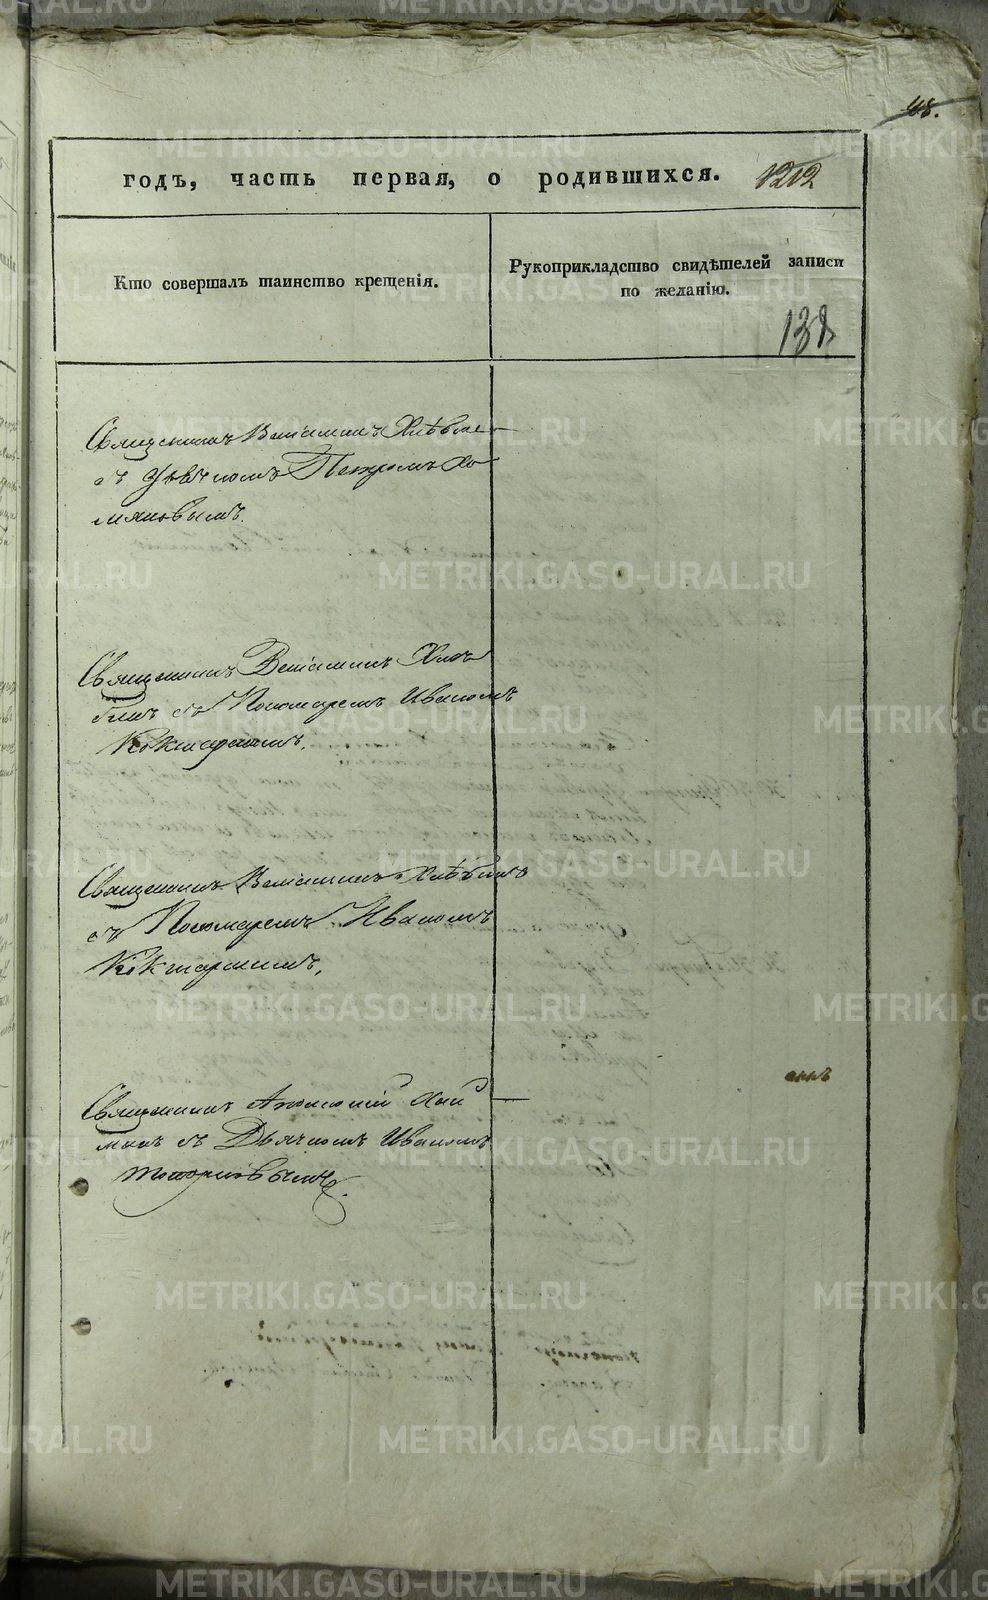 118.
годъ, часть первая, о родившихся. 1212
Кто совершалъ таинство крещенія.
Рукоприкладство свидѣтелей записи
по желанію.
138
Священникъ Веніаминъ Хлѣбин
съ Дьячкомъ Петромъ Хо
мяковымъ.
Священникъ Веніаминъ Хлѣ
бинъ съ Пономаремъ Иваномъ
Кокшарскимъ.
Священникъ Веніаминъ Хлѣбинъ
съ Пономаремъ Иваномъ
Кокшарскимъ.
Священникъ
съ Дьячкомъ Иваномъ
Топорковымъ.
METRIKI.GASO-URAL.RU